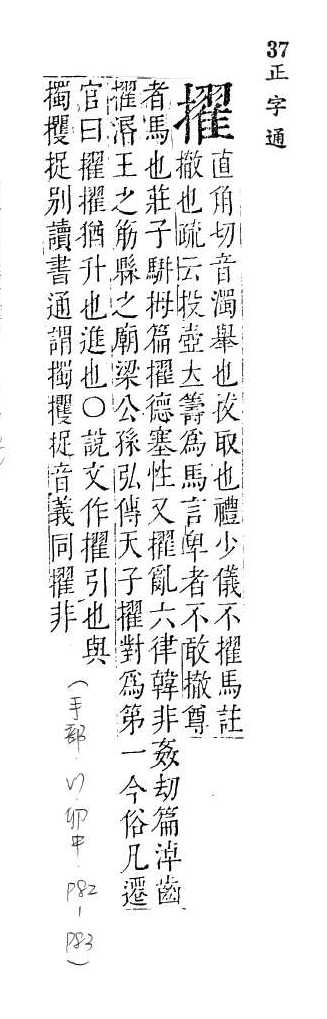 37正字通
擢
直角切音濁舉也拔取也禮少儀不擢馬註
擢徹也疏云投壺大籌爲馬言卑者不敢撤尊
者馬也莊子駢拇篇擢德塞性又擢亂六律韓非姦劫篇淖齒
擢湣王之筋縣之廟梁公孫弘傳天子擢對爲第一今俗凡遷
官曰擢擢猶升也進也○說文作擢引也與
擉攫捉别讀書通謂擉攫捉音義同擢非
(手部 ·卯中 P82-P83)